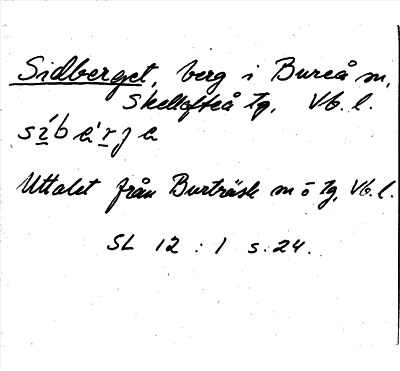 Sidberget, berg i Bureå sn,
Skellefteå tg, Vb. l.
Uttalet från Burträsk sn o tg, Vb. l.
SL 12 : 1 s. 24.